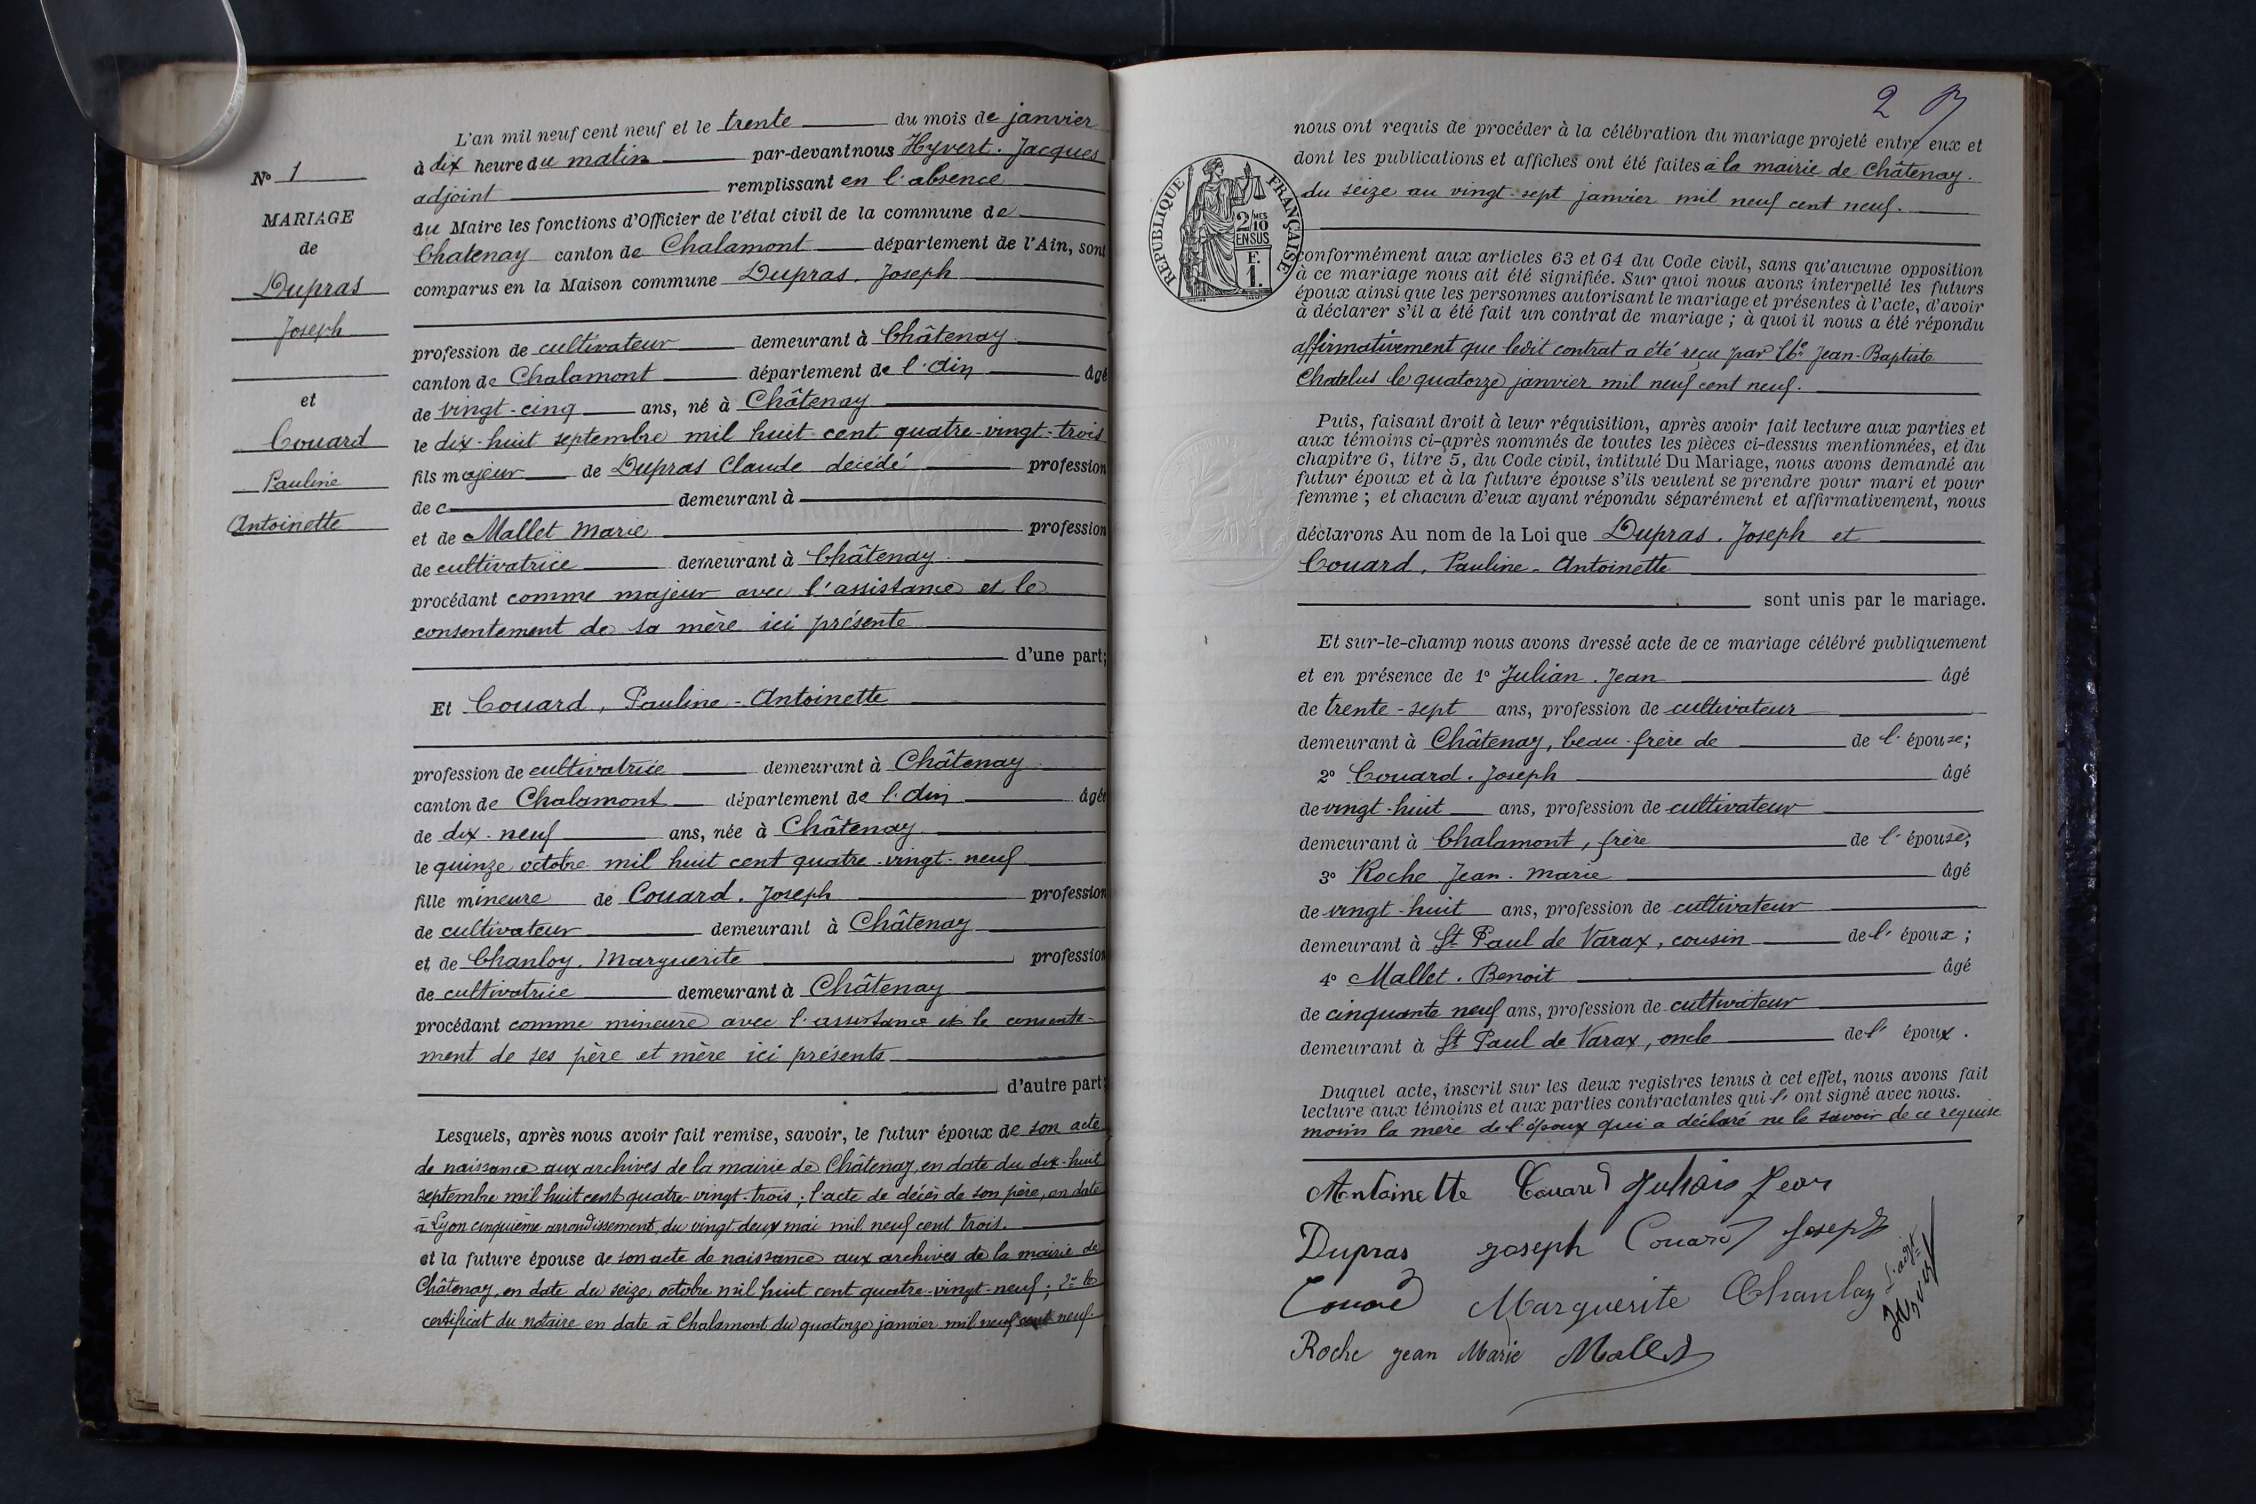 N° 1
MARIAGE
de
Dupras
Joseph
et
Couard
Pauline
Antoinette
L'an mil neuf cent neuf et le trente du mois de janvier
à dix heure du matin par-devant nous Hyvert. Jacques
adjoint remplissant en l'absence
du Maire les fonctions d'Officier de l'état civil de la commune de
Chatenay canton de Chalamont département de l'Ain, sont
comparus en la Maison commune Dupras. Joseph
profession de cultivateur demeurant à Châtenay
canton de Chalamont département de l'Ain âgé
de vingt-cinq ans, né à Châtenay
le dix-huit septembre mil huit cent quatre-vingt-trois
fils majeur de Dupras Claude décédé profession
de c demeurant à
et de Mallet Marie profession
de cultivatrice demeurant à Châtenay
procédant comme majeur avec l'assistance et le
consentement de sa mère ici présente
d'une part;
Et Couard, Pauline-Antoinette
profession de cultivatrice demeurant à Châtenay
canton de Chalamont département de l'Ain âgée
de dix-neuf ans, née à Châtenay
le quinze octobre mil huit cent quatre-vingt-neuf
fille mineure de Couard. Joseph profession
de cultivateur demeurant à Châtenay
et de Chanloy. Marguerite profession
de cultivatrice demeurant à Châtenay
procédant comme mineure avec l'assistance et le consente-
ment de ses père et mère ici présents
d'autre part;
Lesquels, après nous avoir fait remise, savoir, le futur époux de son acte
de naissance aux archives de la mairie de Châtenay, en date du dix-huit
septembre mil huit cent quatre-vingt-trois; l'acte de décès de son père, en date
à Lyon cinquième arrondissement, du vingt deux mai mil neuf cent trois.
et la future épouse de son acte de naissance aux archives de la mairie de
Châtenay, en date du seize octobre mil huit cent quatre-vingt-neuf; 2° le
certificat du notaire en date à Chalamont du quatorze janvier mil neuf cent neuf
2
nous ont requis de procéder à la célébration du mariage projeté entre eux et
dont les publications et affiches ont été faites à la mairie de Châtenay.
du seize au vingt-sept janvier mil neuf cent neuf.
RÉPUBLIQUE FRANÇAISE
2/10 MES
EN SUS
F.
1.
conformément aux articles 63 et 64 du Code civil, sans qu'aucune opposition
à ce mariage nous ait été signifiée. Sur quoi nous avons interpellé les futurs
époux ainsi que les personnes autorisant le mariage et présentes à l'acte, d'avoir
à déclarer s'il a été fait un contrat de mariage; à quoi il nous a été répondu
affirmativement que ledit contrat a été reçu par Me Jean-Baptiste
Chatelus le quatorze janvier mil neuf cent neuf.
Puis, faisant droit à leur réquisition, après avoir fait lecture aux parties et
aux témoins ci-après nommés de toutes les pièces ci-dessus mentionnées, et du
chapitre 6, titre 5, du Code civil, intitulé Du Mariage, nous avons demandé au
futur époux et à la future épouse s'ils veulent se prendre pour mari et pour
femme; et chacun d'eux ayant répondu séparément et affirmativement, nous
déclarons Au nom de la Loi que Dupras. Joseph et
Couard, Pauline-Antoinette
sont unis par le mariage.
Et sur-le-champ nous avons dressé acte de ce mariage célébré publiquement
et en présence de 1° Julian. Jean âgé
de trente-sept ans, profession de cultivateur
demeurant à Châtenay, beau-frère de de l'épouse;
2° Couard. Joseph âgé
de vingt-huit ans, profession de cultivateur
demeurant à Chalamont, frère de l'épouse;
3° Roche Jean-Marie âgé
de vingt-huit ans, profession de cultivateur
demeurant à St Paul de Varax, cousin de l'époux;
4° Mallet. Benoit âgé
de cinquante neuf ans, profession de cultivateur
demeurant à St Paul de Varax, oncle de l'époux.
Duquel acte, inscrit sur les deux registres tenus à cet effet, nous avons fait
lecture aux témoins et aux parties contractantes qui l'ont signé avec nous.
moins la mère de l'époux qui a déclaré ne le savoir de ce requise
Antoinette Couard Julian Jean
Dupras Joseph Couard Joseph
Couard Marguerite Chanlay L'adjt
Roche Jean Marie Mallet